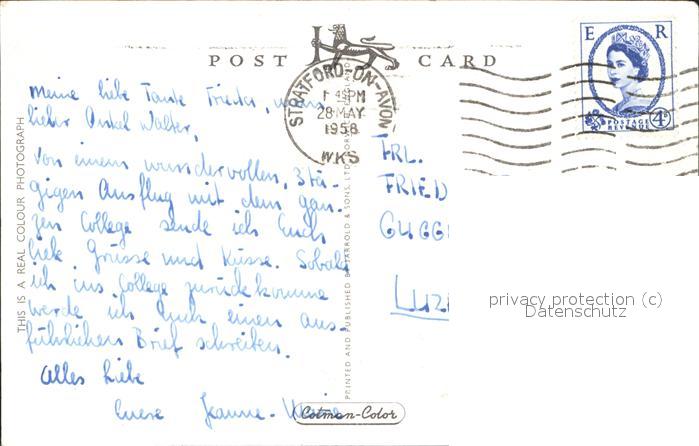 POST CARD
E R
POSTAGE REVENUE
4D
STRATFORD-ON-AVON
1 45PM
28 MAY
1958
WKS
THIS IS A REAL COLOUR PHOTOGRAPH
Meine liebe Tante Frieda, mein
lieber Onkel Walter,
Von einem wundervollen, 3 tä-
gigen Ausflug mit dem gan-
zen College sende ich Euch
liebe Grüsse und Küsse. Sobald
ich ins College zurückkomme
werde ich Euch einen aus-
führlichen Brief schreiben.
Alles Liebe
Euere Jeanne-
PRINTED AND PUBLISHED BY JARROLD & SONS, LTD.
FRL.
FRIED
GUGG
LUZ
privacy protection (c)
Datenschutz
Cotman-Color